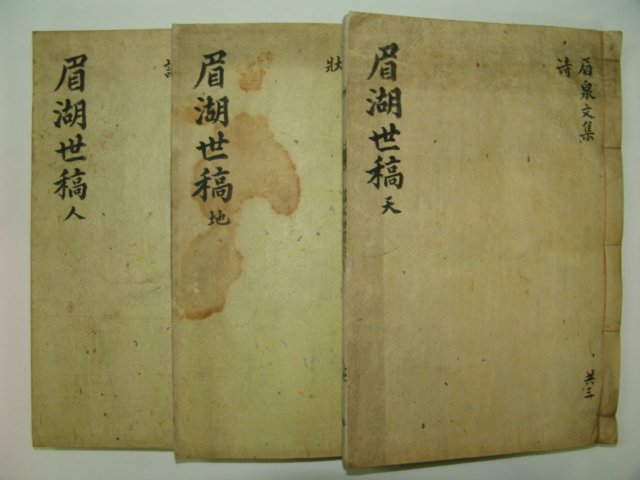 眉泉文集
詩
共三
眉湖世稿 天
狀
眉湖世稿 地
眉湖世稿 人